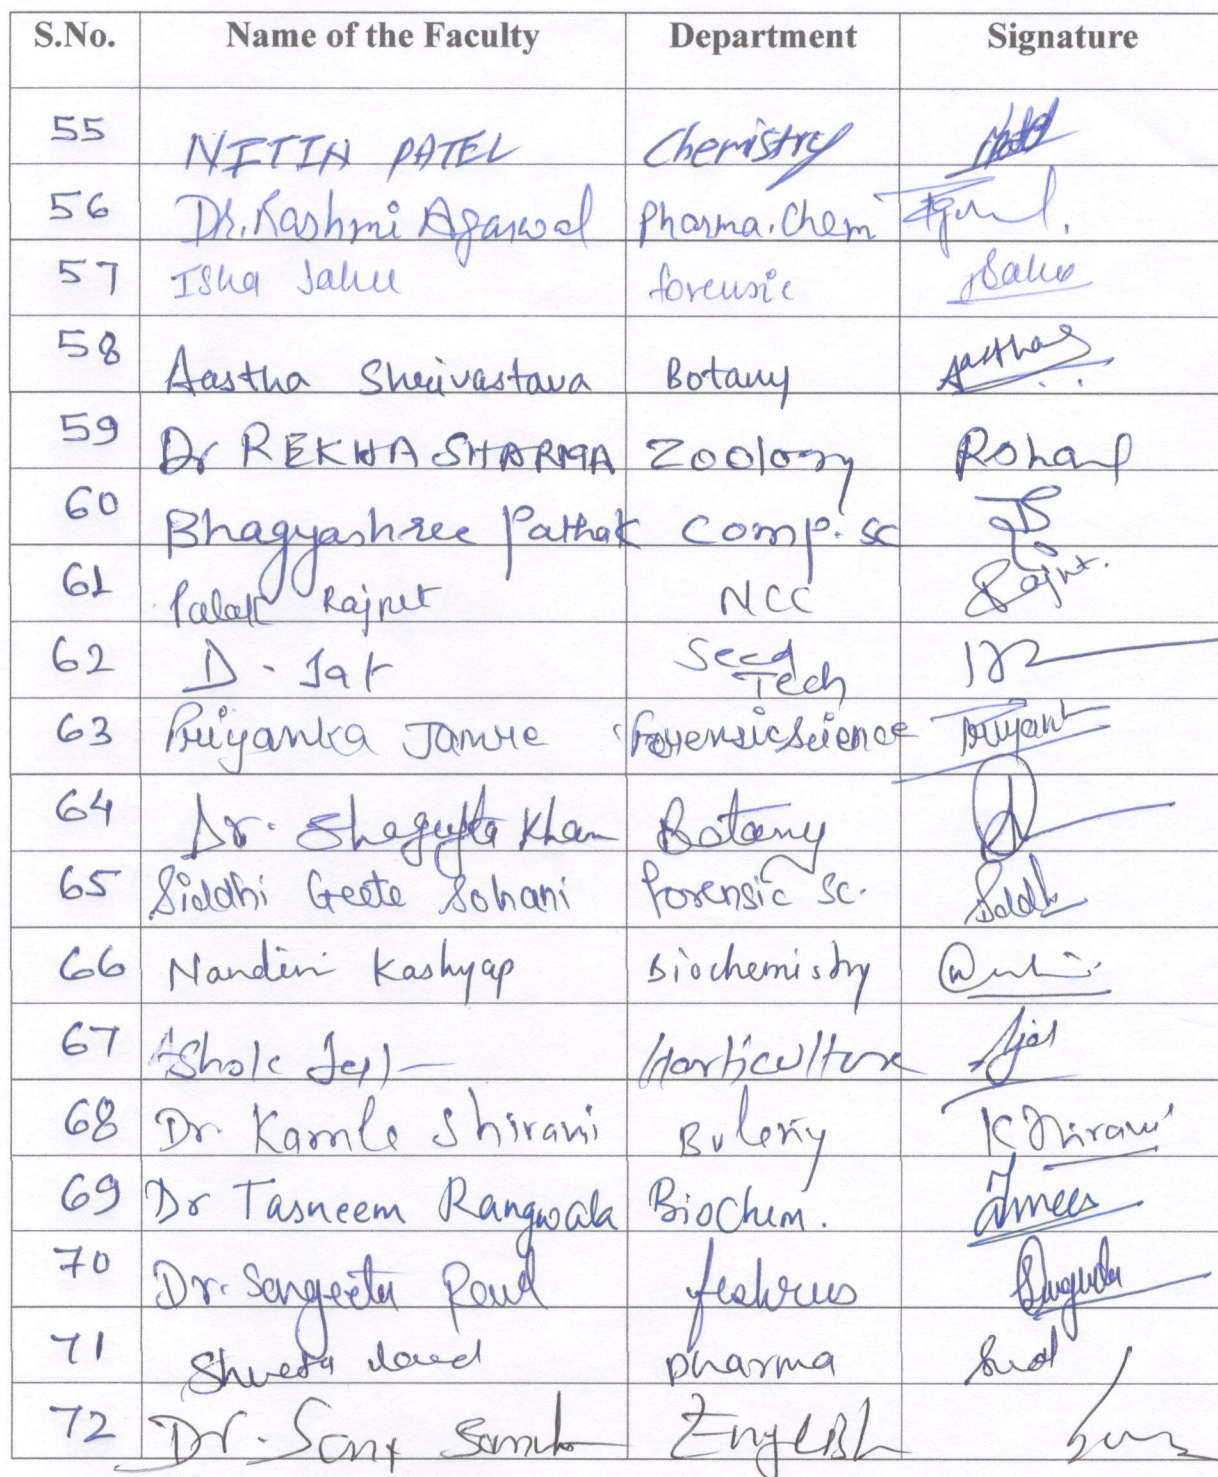 S.No. Name of the Faculty Department Signature
55 NITIN PATEL Chemistry
56 Dr. Rashmi Agarwal Pharma. Chem
57 Isha Sahu forensic Sahu
58 Aastha Shrivastava Botany Aastha
59 Dr REKHA SHARMA Zoology
60 Bhagyashree Pathak Comp. Sc
61 Palak Rajput NCC Rajput.
62 D. Jat Seed
Tech
63 Priyanka Jamre Forensic Science Priyanka
64 Dr. Shagufta Khan Botany
65 Siddhi Geete Sohani Forensic Sc. Siddhi
66 Nandini Kashyap Biochemistry
67 Ashok Horticulture
68 Dr. Kamle Shivani K Shivani
69 Dr Tasneem Rangwala BioChem.
70 Dr. Sangeeta Sangeeta
71 Shweta pharma
72 Dr. English